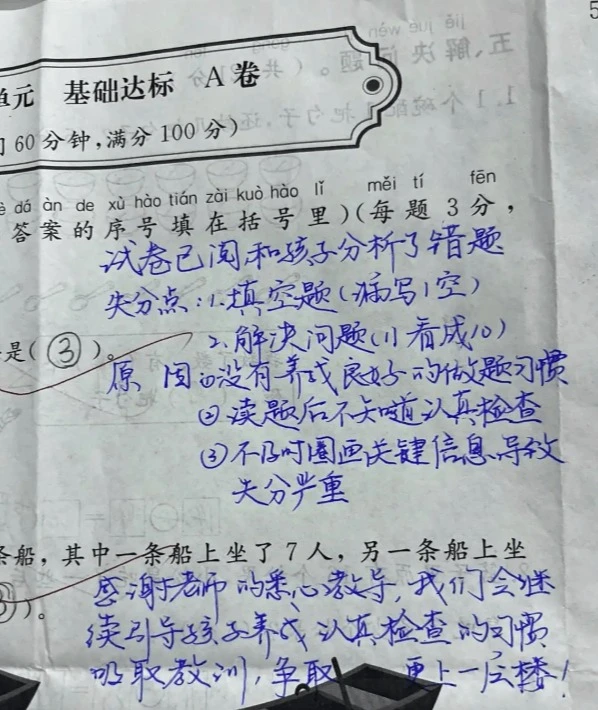 单元 基础达标 A卷
60分钟,满分100分)
dá àn de xù hào tián zài kuò hào lǐ měi tí fēn
答案的序号填在括号里)(每题3分,
试卷已阅,和孩子分析了错题
失分点:1.填空题(漏写1空)
2.解决问题(11看成10)
是(③)。
原因①没有养成良好的做题习惯
②读题后不知道认真检查
③不及时圈画关键信息导致
失分严重
条船,其中一条船上坐了7人,另一条船上坐
感谢于老师的悉心教导,我们会继
续引导孩子养成认真检查的习惯
吸取教训,争取 更上一层楼!